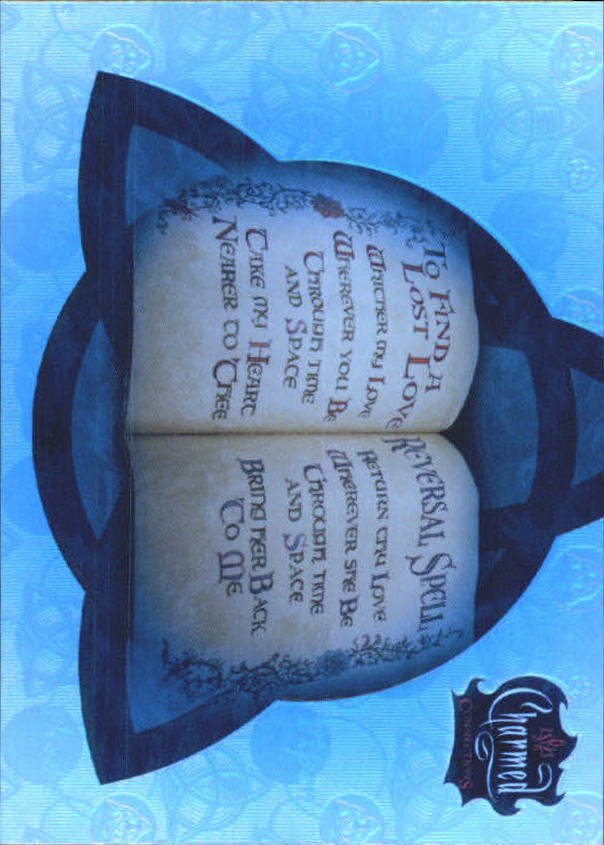 To Find A
Lost Love
Whither my Love
Wherever you Be
Through time
and Space
Take my Heart
Nearer to Thee
Reversal Spell
Return thy Love
Wherever she Be
Through time
and Space
Bring her Back
To Me
Charmed
Connections